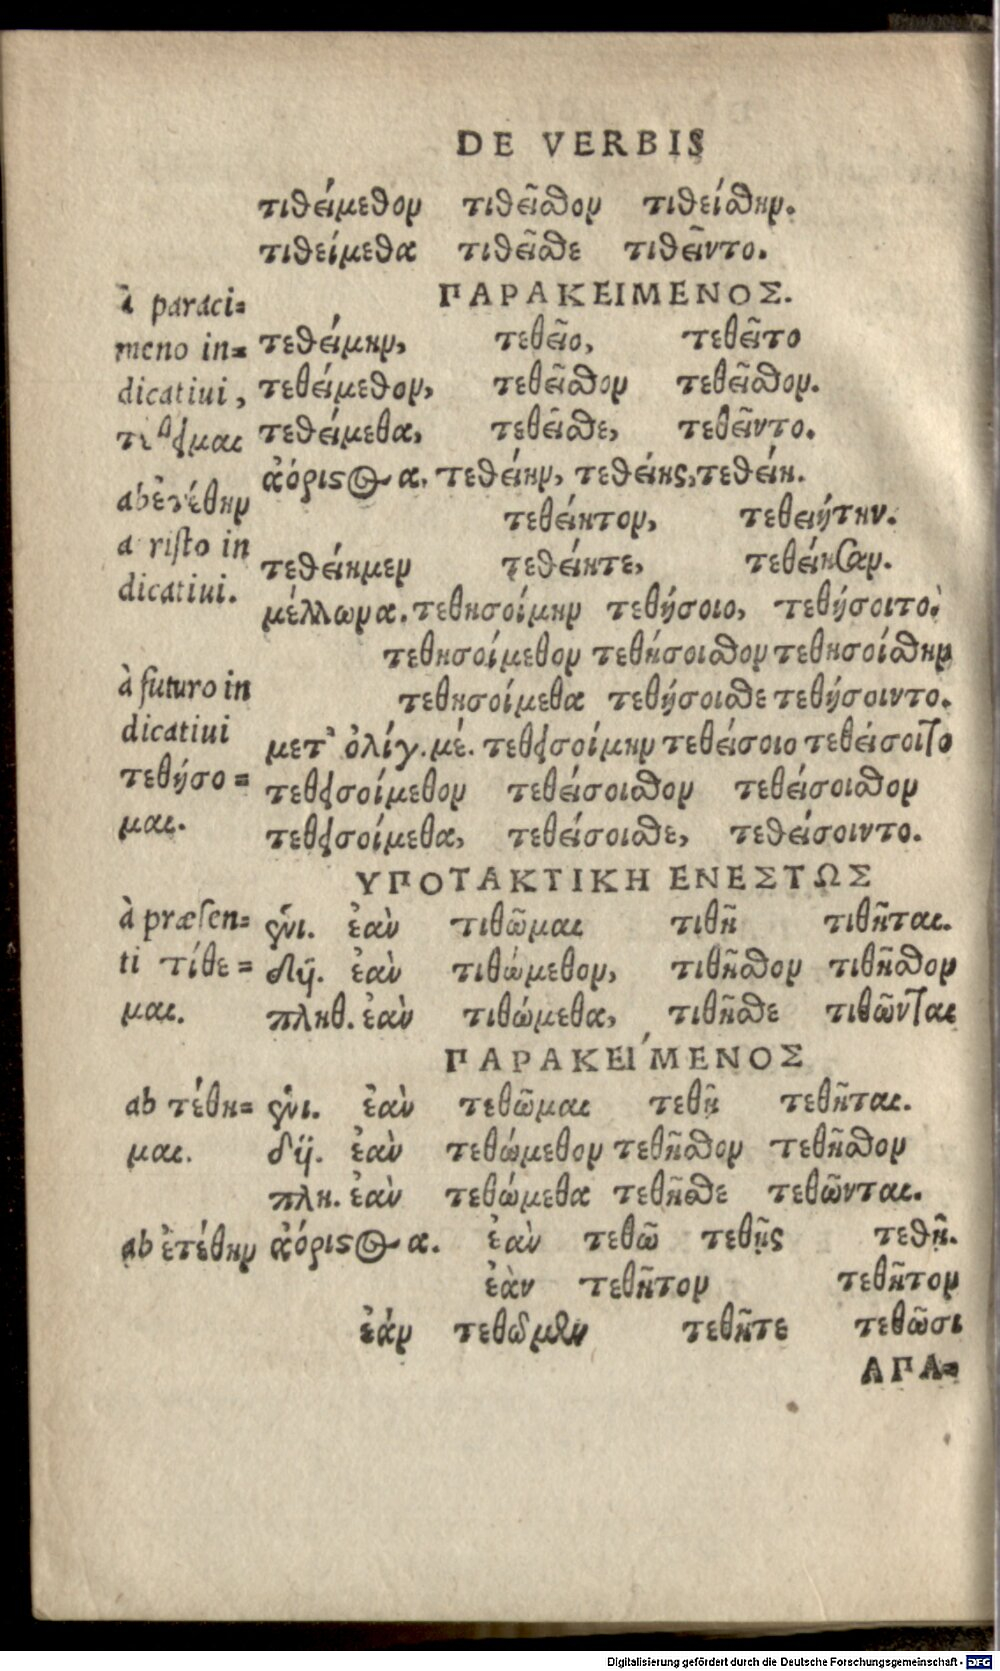 DE VERBIS
τιθείμεθον τιθεῖσθον τιθείσθην.
τιθείμεθα τιθεῖσθε τιθεῖντο.
ΠΑΡΑΚΕΙΜΕΝΟΣ.
à paraci=
meno in=
dicatiui,
τεθείμην, τεθεῖο, τεθεῖτο
τεθείμεθον, τεθεῖσθον τεθεῖσθον.
τεθείμεθα, τεθεῖσθε, τεθεῖντο.
ab ἐτέθην
a risto in
dicatiui.
ἀόριστος α. τεθείην, τεθείης, τεθείη.
τεθείητον, τεθειήτην.
τεθείημεν τεθείητε, τεθείησαν.
μέλλων α. τεθησοίμην τεθήσοιο, τεθήσοιτο.
τεθησοίμεθον τεθήσοισθον τεθησοίσθην
τεθησοίμεθα τεθήσοισθε τεθήσοιντο.
à futuro in
dicatiui
τεθήσο=
μαι.
μετ' ὀλίγ. μέ. τεθεισοίμην τεθείσοιο τεθείσοιτο
τεθεισοίμεθον τεθείσοισθον τεθείσοισθον
τεθεισοίμεθα, τεθείσοισθε, τεθείσοιντο.
ΥΠΟΤΑΚΤΙΚΗ ΕΝΕΣΤΩΣ
à præsen=
ti τίθε=
μαι.
ἑνι. ἐὰν τιθῶμαι τιθῇ τιθῆται.
δυϊ. ἐὰν τιθώμεθον, τιθῆσθον τιθῆσθον
πληθ. ἐὰν τιθώμεθα, τιθῆσθε τιθῶνται
ΠΑΡΑΚΕΙ΄ΜΕΝΟΣ
ab τέθη=
μαι.
ἑνι. ἐὰν τεθῶμαι τεθῇ τεθῆται.
δυϊ. ἐὰν τεθώμεθον τεθῆσθον τεθῆσθον
πλη. ἐὰν τεθώμεθα τεθῆσθε τεθῶνται.
ab ἐτέθην ἀόριστος α. ἐὰν τεθῶ τεθῇς τεθῇ.
ἐὰν τεθῆτον τεθῆτον
ἐάν τεθῶμεν τεθῆτε τεθῶσι
ΑΠΑ=
Digitalisierung gefördert durch die Deutsche Forschungsgemeinschaft - DFG